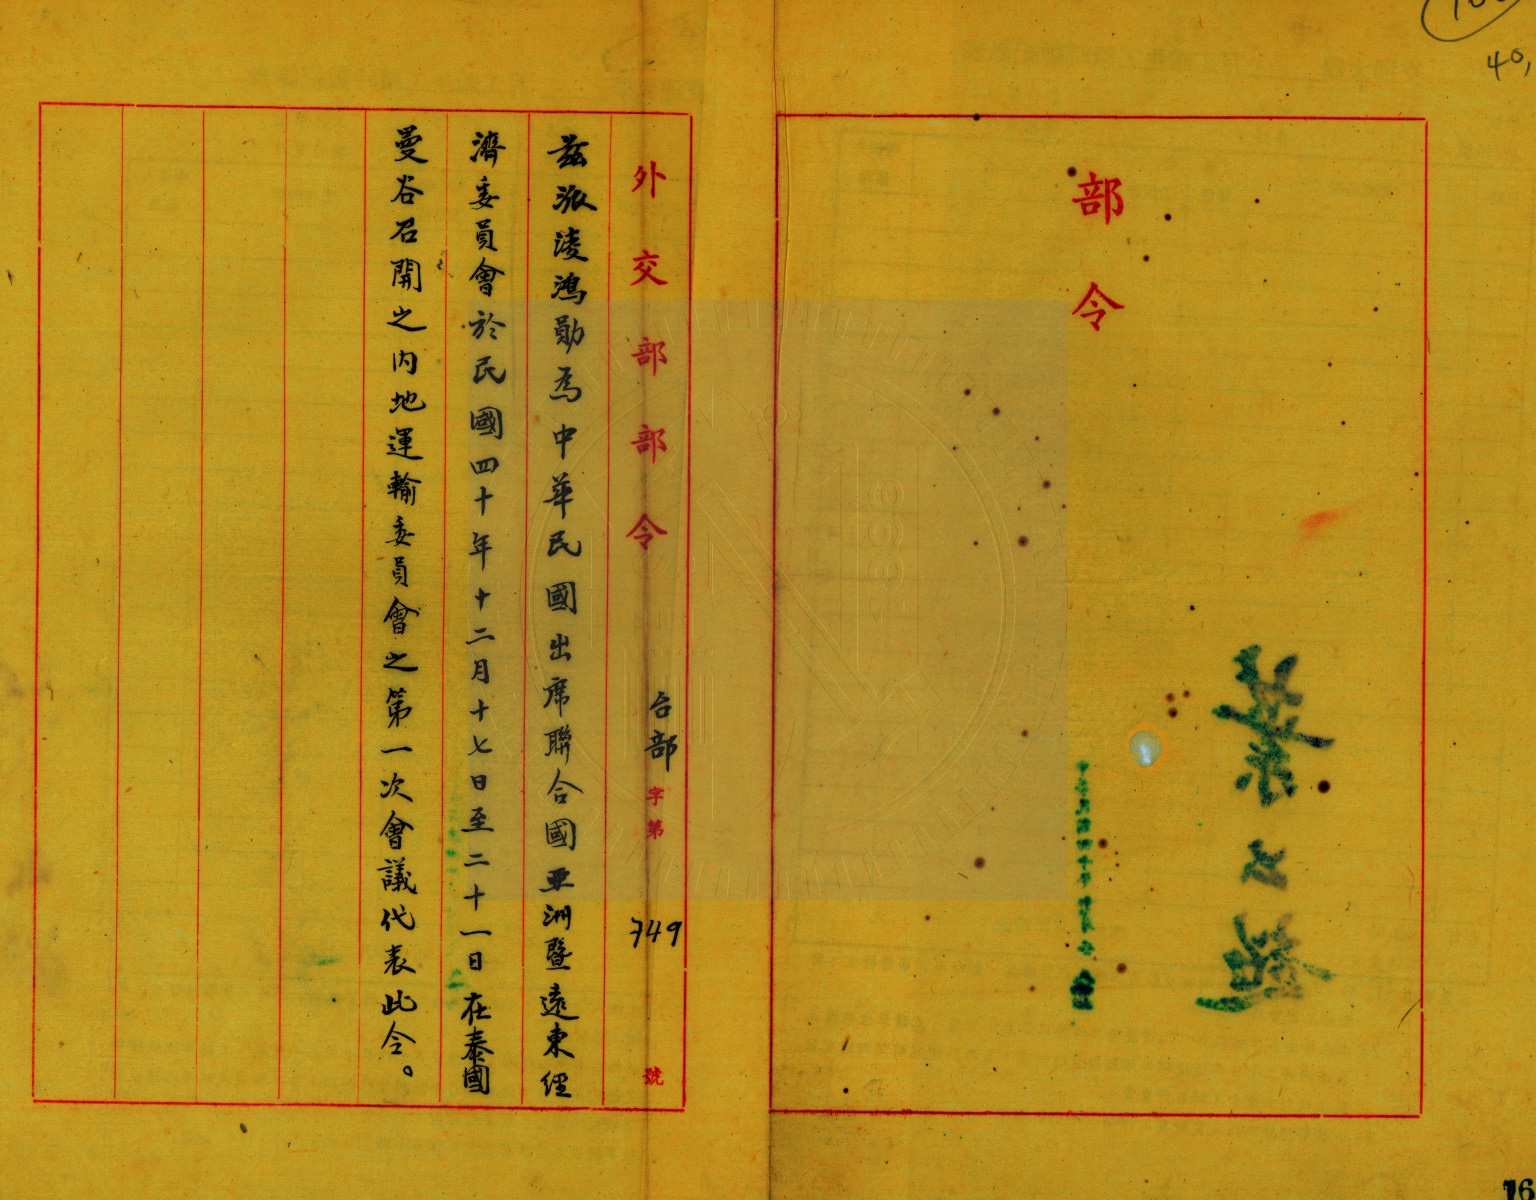 40,
部令
葉公超
外交部部令 台部字第749號
茲派淩鴻勛為中華民國出席聯合國亞洲暨遠東經
濟委員會於民國四十年十二月十七日至二十一日在泰國
曼谷召開之內地運輸委員會之第一次會議代表此令。
16